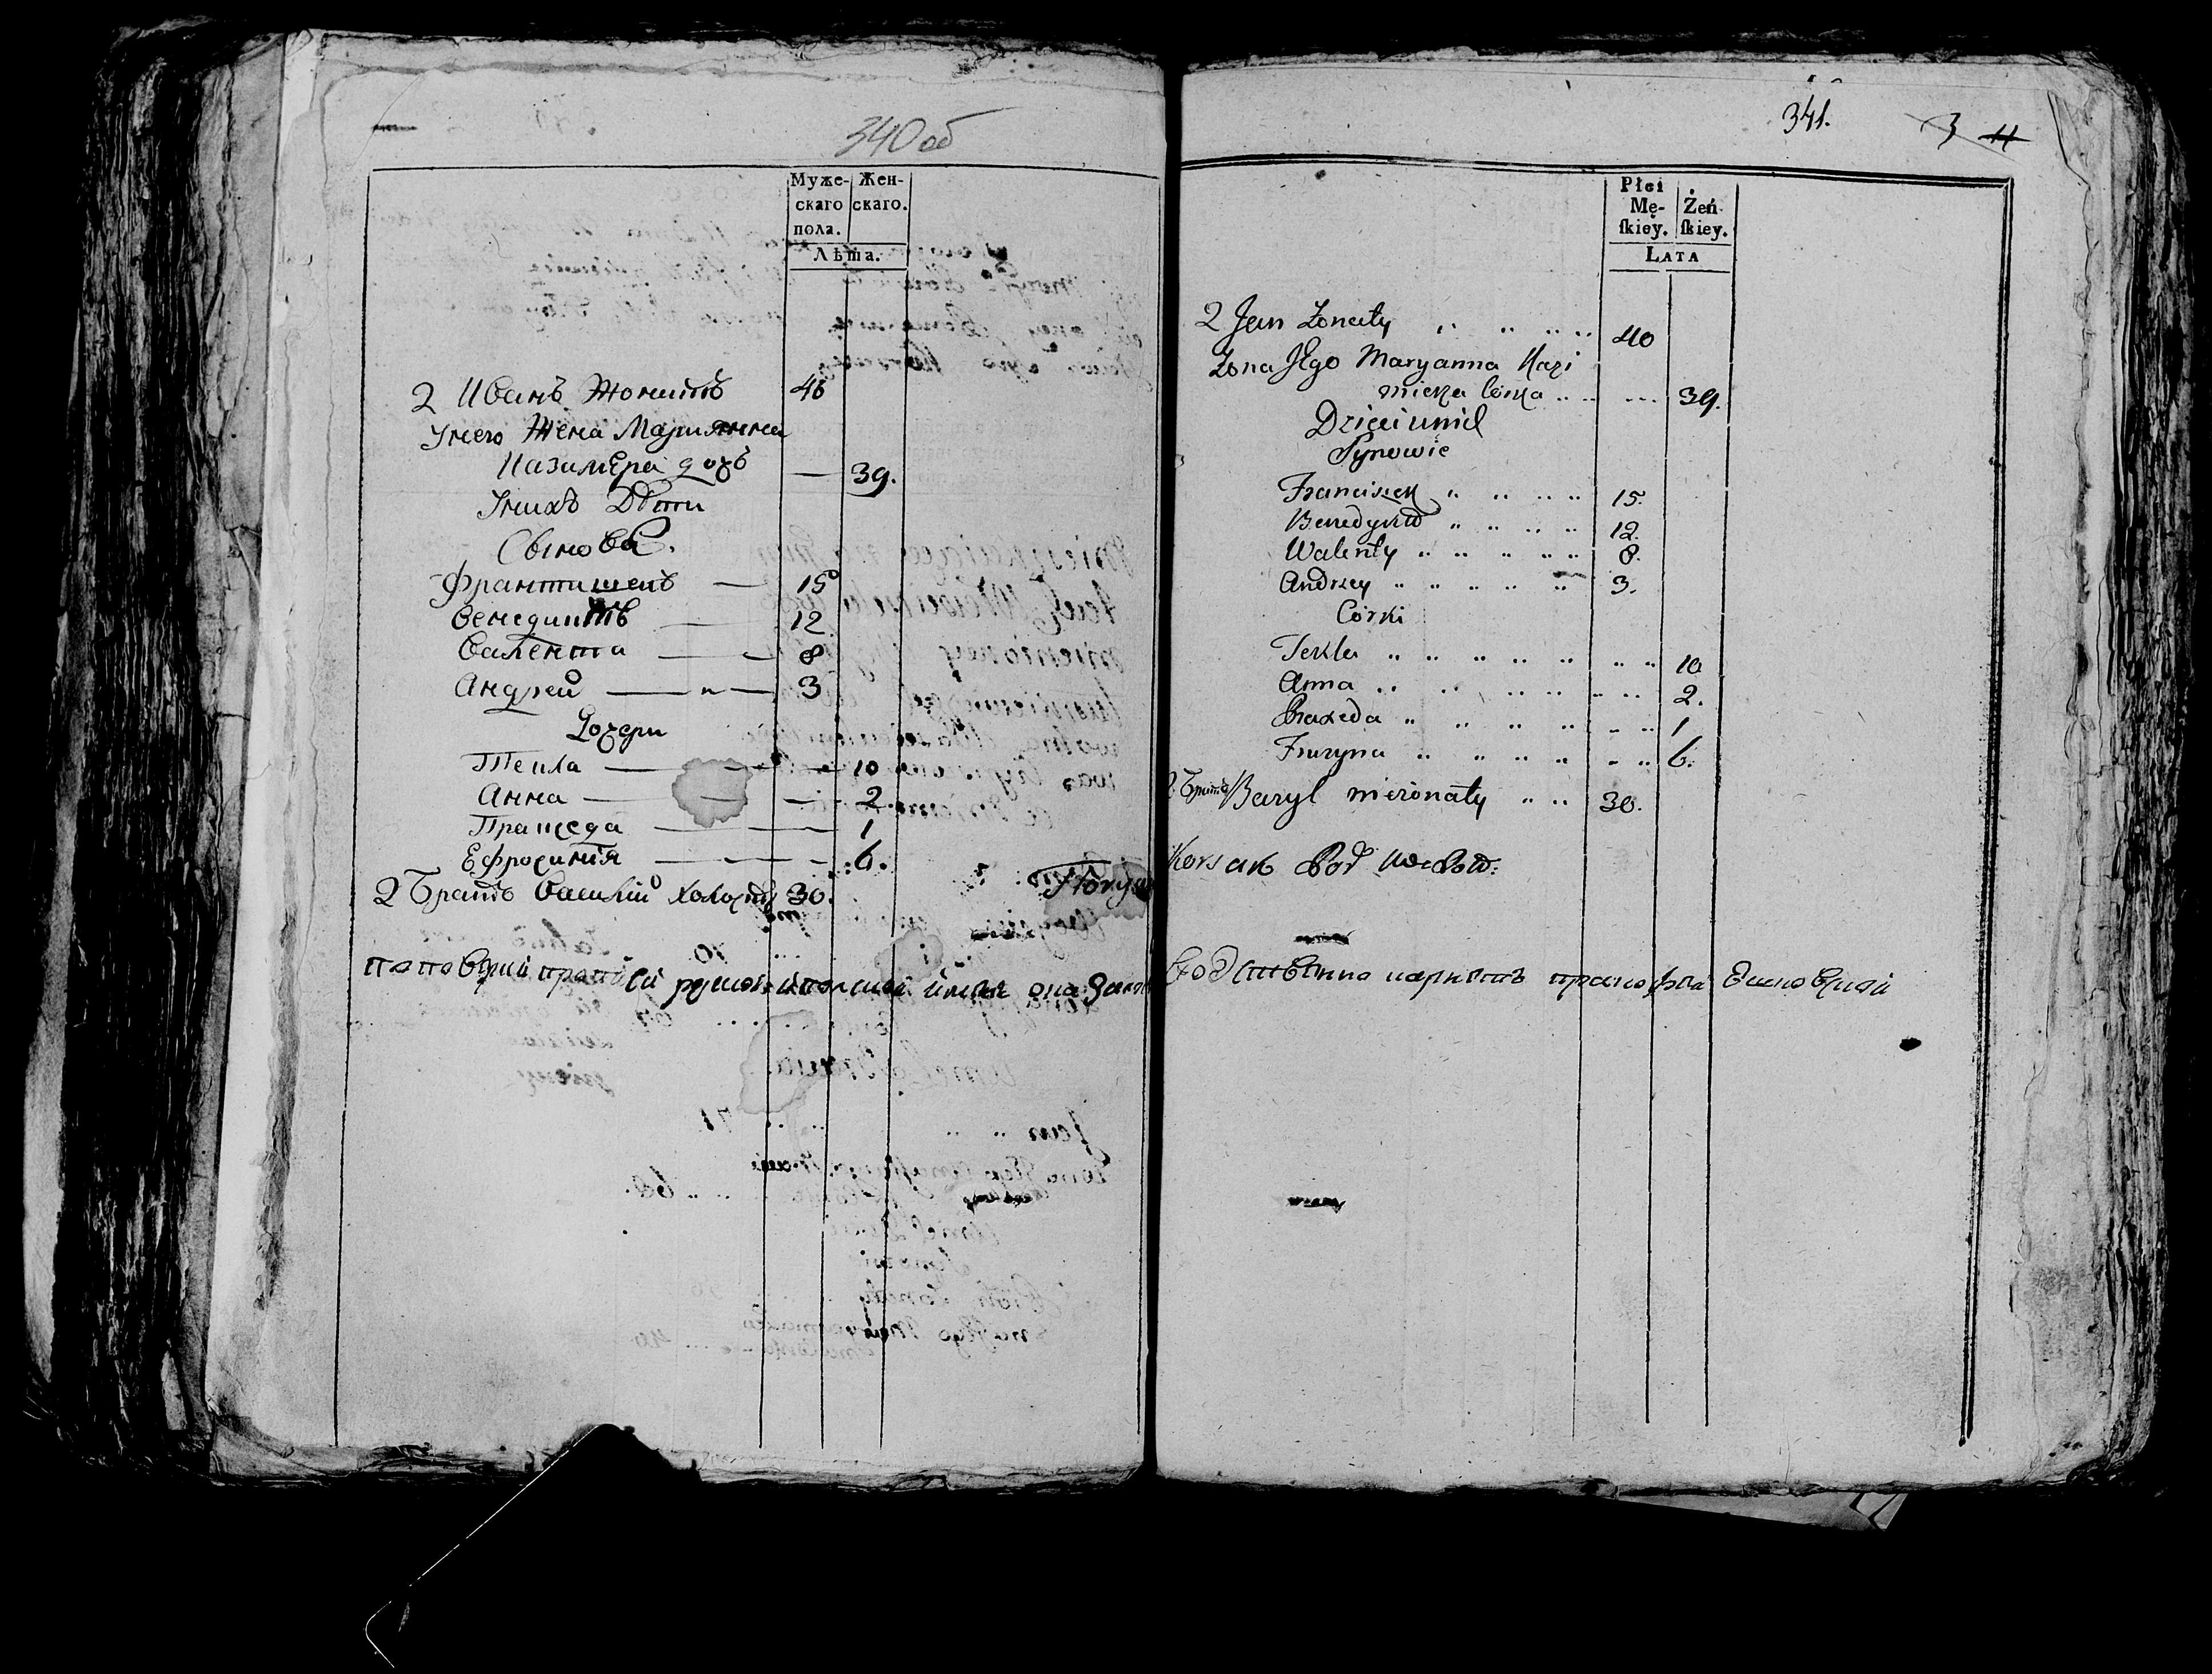 340 об
Муже- Жен-
скаго скаго.
пола.
Лѣта.
2 Иванъ Жонатъ 40
Унего Жена Марианна
Казимера дочь — 39.
Унихъ Дѣти
Сынове.
Франтишекъ — 15
Бенедиктъ — 12
Валента — 8
Андрей — 3
Дочери
Текла — 10
Анна — 2.
Пракседа — 1
Ефросинія — 6.
2 Братъ Василій холостъ 30.
341.
3 11
Płci
Mę- Żeń
ſkiey. ſkiey.
Lata
2 Jan Żonaty 40
Żona JEgo Maryanna Kazi
mierza Córka 39.
Dzieci unich
Synowie
Franciszek 15.
Benedykt 12.
Walenty 8.
Andrzey 3.
Córki
Tekla 10
Anna 2.
Praxeda 1
Fruzyna 6.
2. Братъ Bazyl nieżonaty 30.
Floryan Korsak